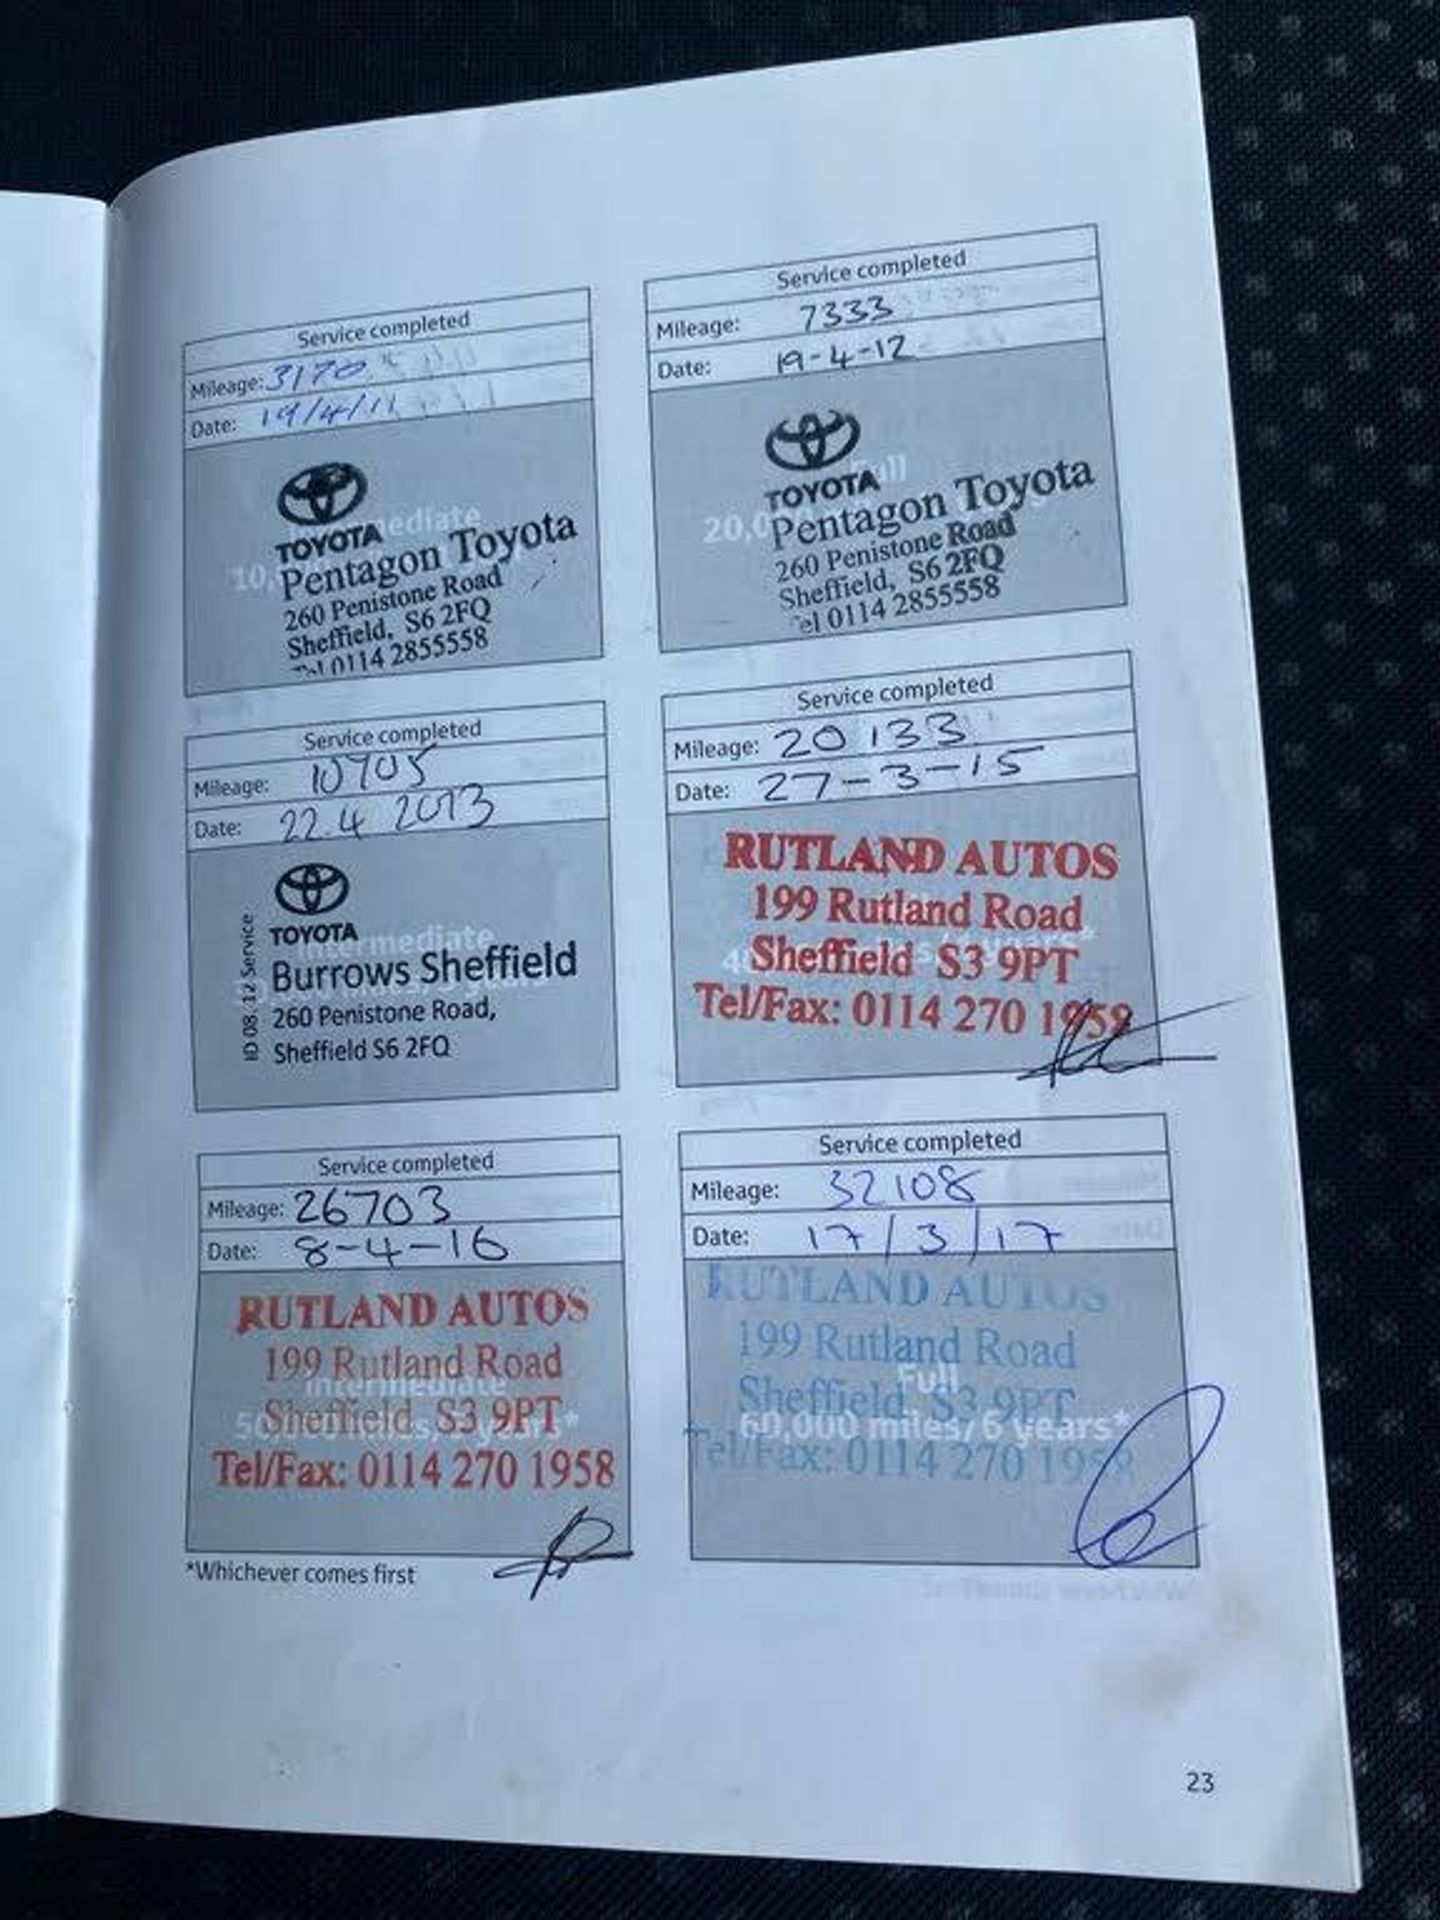 Service completed
Mileage: 3170
Date: 19/4/11
TOYOTA
Pentagon Toyota
260 Penistone Road
Sheffield, S6 2FQ
Tel 0114 2855558
Service completed
Mileage: 7333
Date: 19-4-12
TOYOTA
Pentagon Toyota
260 Penistone Road
Sheffield, S6 2FQ
Tel 0114 2855558
Service completed
Mileage: 10705
Date: 22.4 2013
ID 08.12 Service
TOYOTA
Intermediate
Burrows Sheffield
260 Penistone Road,
Sheffield S6 2FQ
Service completed
Mileage: 20133
Date: 27-3-15
RUTLAND AUTOS
199 Rutland Road
Sheffield S3 9PT
Tel/Fax: 0114 270 1958
Service completed
Mileage: 26703
Date: 8-4-16
RUTLAND AUTOS
199 Rutland Road
Intermediate
Sheffield S3 9PT
Tel/Fax: 0114 270 1958
*Whichever comes first
Service completed
Mileage: 32108
Date: 17/3/17
RUTLAND AUTOS
199 Rutland Road
Full
Sheffield S3 9PT
60,000 miles/6 years*
Tel/Fax: 0114 270 1958
23